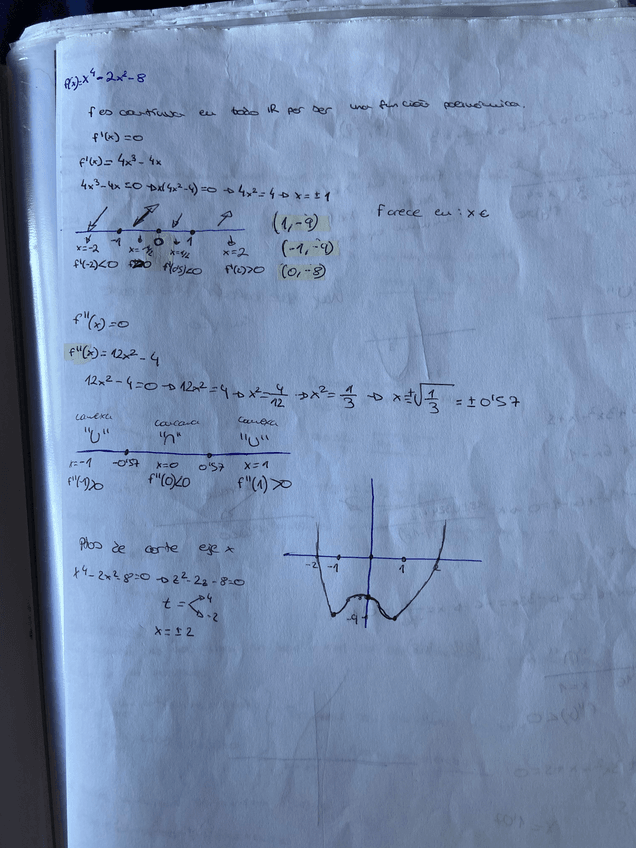 f(x)=x⁴-2x²-8
f es continua en todo IR por ser una función polinómica.
f'(x)=0
f'(x)=4x³-4x
4x³-4x=0 → x(4x²-4)=0 → 4x²=4 → x=±1
Farece en: x∈
-1 0 1
x=-2 x=-1/2 x=1/2 x=2
f'(-2)<0 f'(0'5)<0 f'(2)>0
(1,-9)
(-1,-9)
(0,-8)
f''(x)=0
f''(x)=12x²-4
12x²-4=0 → 12x²=4 → x²=4/12 → x²=1/3 → x=±√1/3 = ±0'57
convexa concava convexa
"U" "∩" "U"
x=-1 -0'57 x=0 0'57 x=1
f''(-1)>0 f''(0)<0 f''(1)>0
Ptos de corte eje x
x⁴-2x²-8=0 → z²-2z-8=0
t= 4
-2
x=±2
-2 -1 1 2
-9